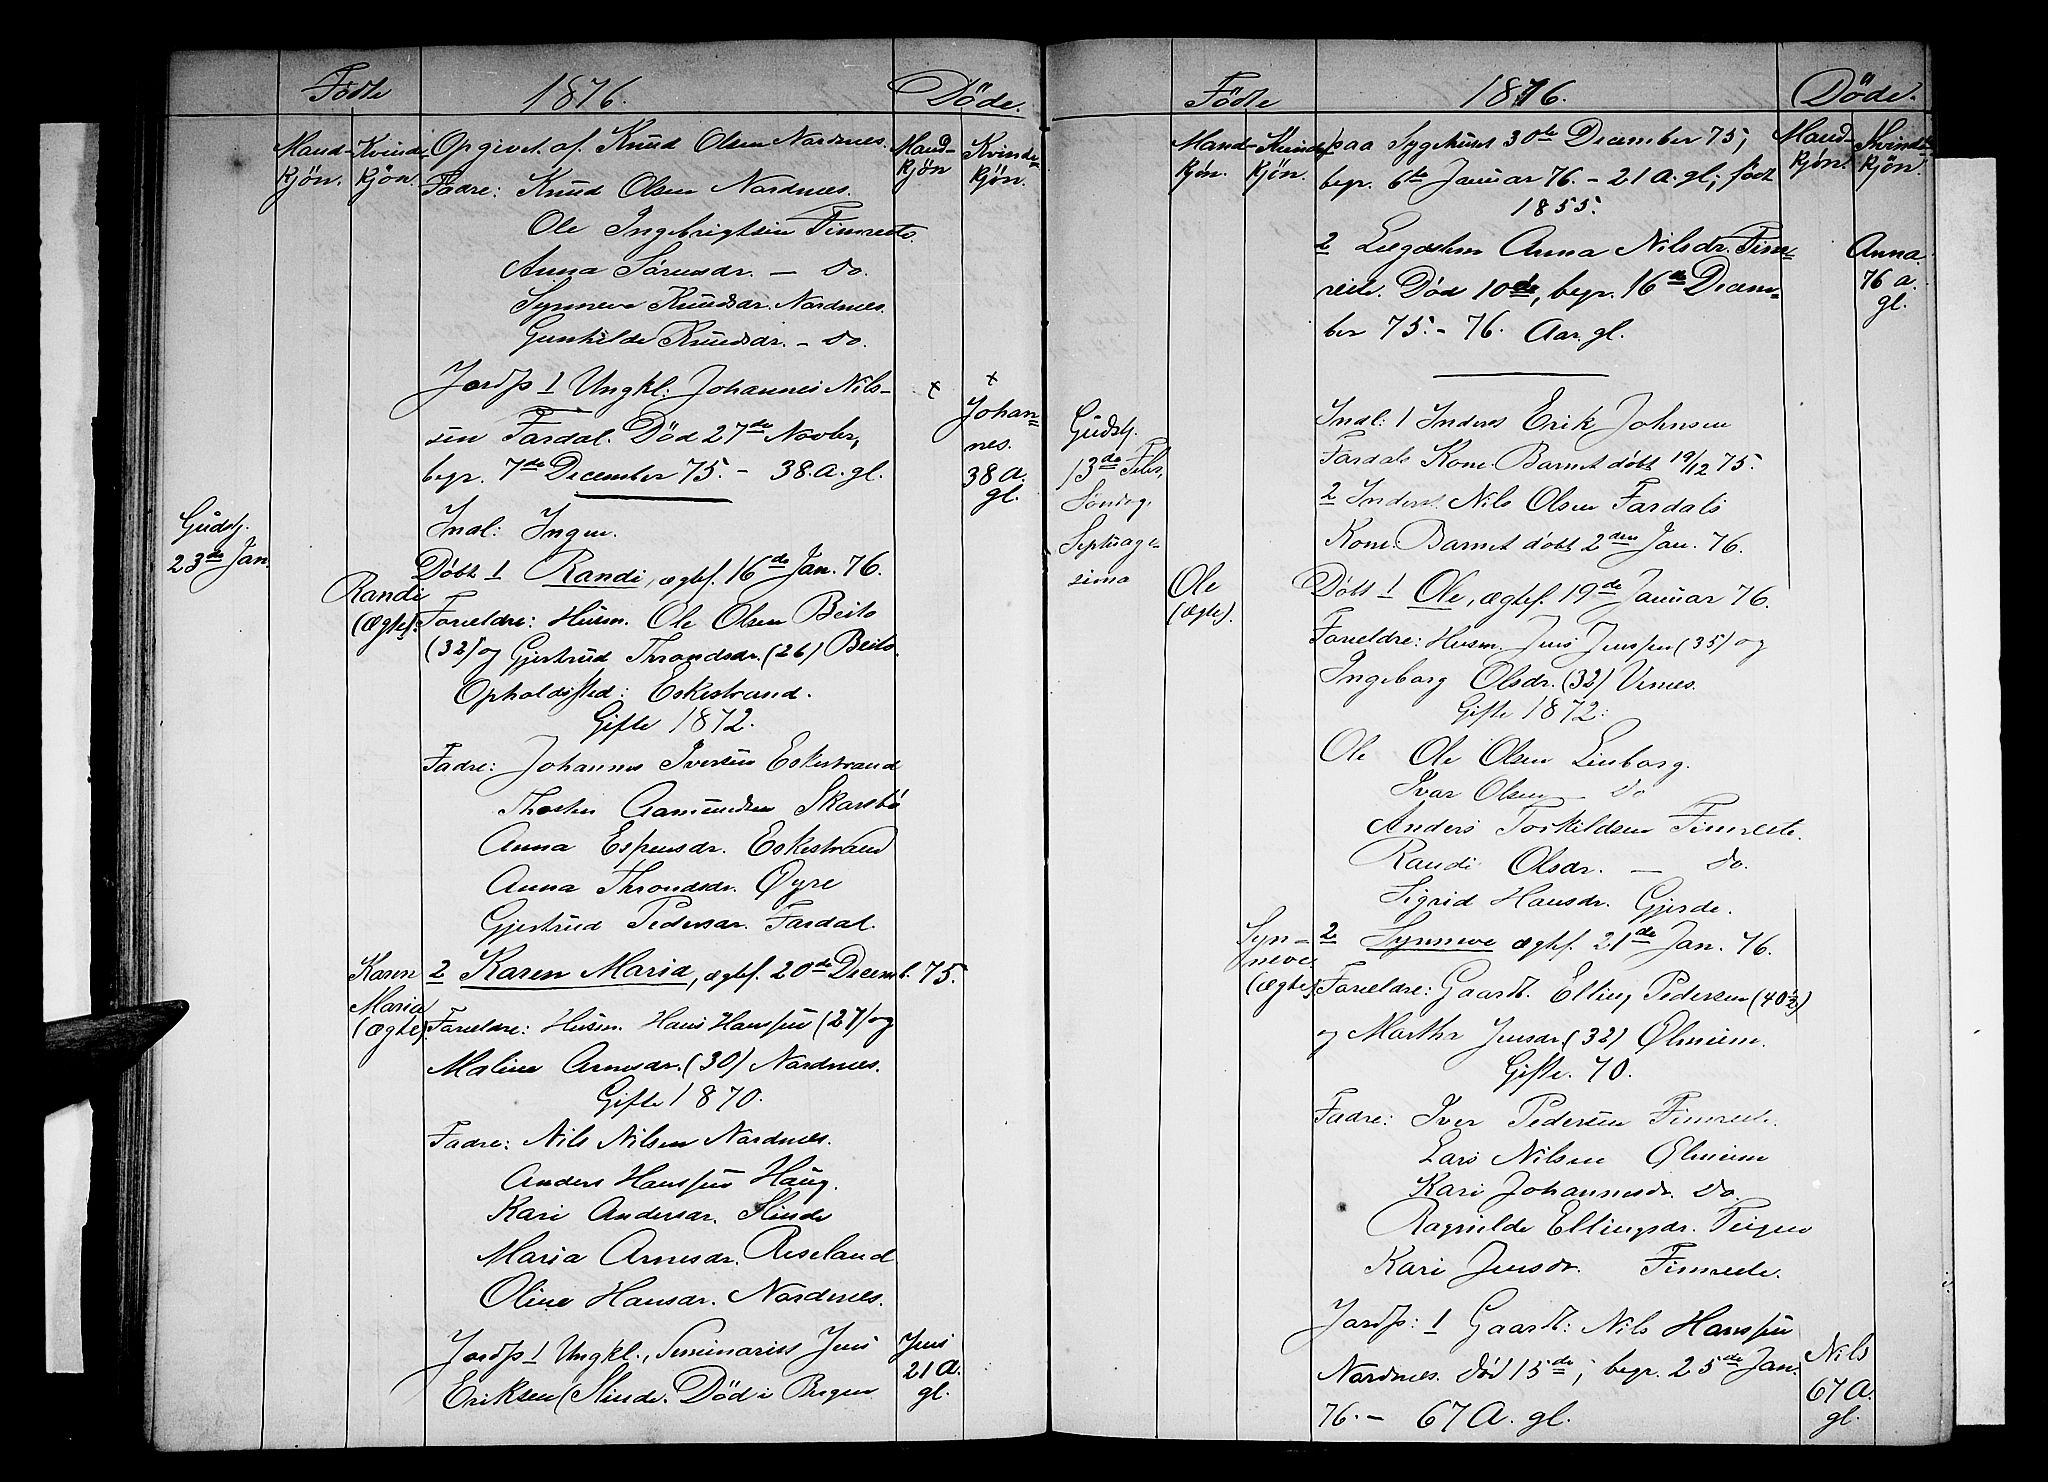 Fødte 1876. Døde.
Mand- Kvinde- Opgivet af Knud Olsen Nordnes. Mand- Kvinde-
kjøn. kjøn. Fadre: Knud Olsen Nordnes. kjøn kjøn.
Ole Ingebrigtsen Fimreite.
Anna Sørensdr. — do.
Synneve Knudsdr. Nordnes.
Gunhilde Knudsdr. — do.
Jordf. 1 Ungkl. Johannes Nils- + +
sen Fardal. Død 27de Novbr, Johan=
nes.
begr. 7de December 75. — 38. a. gl. 38 a.
gl.
Gudstj.
23de Jan.
Indl: Ingen.
Døbt 1 Randi, ægtef. 16de Jan. 76.
Randi
(ægte). Forældre: Husm. Ole Olsen Beito
(32) og Gjertrud Throndsdr. (26) Beito.
Opholdssted: Eskestrand.
Gifte 1872.
Fadre: Johannes Iversen Eskestrand
Thosten Aamundsen Skarsbø
Anna Espensdr. Eskestrand
Anna Throndsdr. Øyre
Gjertrud Pedersdr. Fardal.
Karen 2 Karen Maria, ægtef. 20de Decemb. 75.
Maria
(ægte). Forældre: Husm. Hans Hanssen (27) og
Malene Arnesdr. (30) Nordnes.
Gifte 1870.
Fadre: Nils Nilsen Nordnes.
Anders Hanssen Haug.
Kari Andersdr. Slinde
Maria Arnesdr. Riseland
Oline Hansdr. Nordnes.
Jordf. 1 Ungkl., Seminarist Jens Jens
21 A.
Eriksen Slinde. Død i Bergen gl.
Fødte 1876. Døde.
Mand- Kvinde- paa Sygehuset 30te December 75, Mand- Kvinde-
kjøn. kjøn. begr. 6te Januar 76. — 21 A. gl; født kjøn. kjøn.
1855.
2 Lægdslem Anna Nilsdr. Fim= Anna
reite. Død 10de, begr. 16de Decem= 76 a.
ber 75. — 76. Aar. gl. gl.
Gudstj.
13de Febr,
Søndag
Septuage-
sima
Indl: 1 Inders Erik Johnsen
Fardals Kone. Barnet døbt 19/12 75.
2 Inders. Nils Olsen Fardals
Kone. Barnet døbt 2den Jan. 76.
Ole Døbt 1 Ole, ægtef. 19de Januar 76.
(ægte). Forældre: Husm. Jens Jenssen (35) og
Ingeborg Olsdr. (32) Vines.
Gifte 1872:
Ole Ole Olsen Linborg.
Ivar Olsen — do
Anders Torkildsen Fimreite.
Randi Olsdr. — do.
Sigrid Hansdr. Gjerde.
Syn- 2 Synneve ægtef. 21de Jan. 76.
neve
(ægte). Forældre: Gaardb. Elling Pedersen (40½)
og Martha Jensdr. (32) Ølmeim.
Gifte. 70.
Fadre: Iver Pedersen Fimreite.
Lars Nilsen Ølmeim
Kari Johannesdr. do.
Ragnilde Ellingsdr. Teigen
Kari Jensdr. Fimreite.
Jordf: 1 Gaardb: Nils Hanssen
Nordnes. død 15de; begr. 25de Jan. Nils
76. — 67 A. gl. 67 A.
gl.